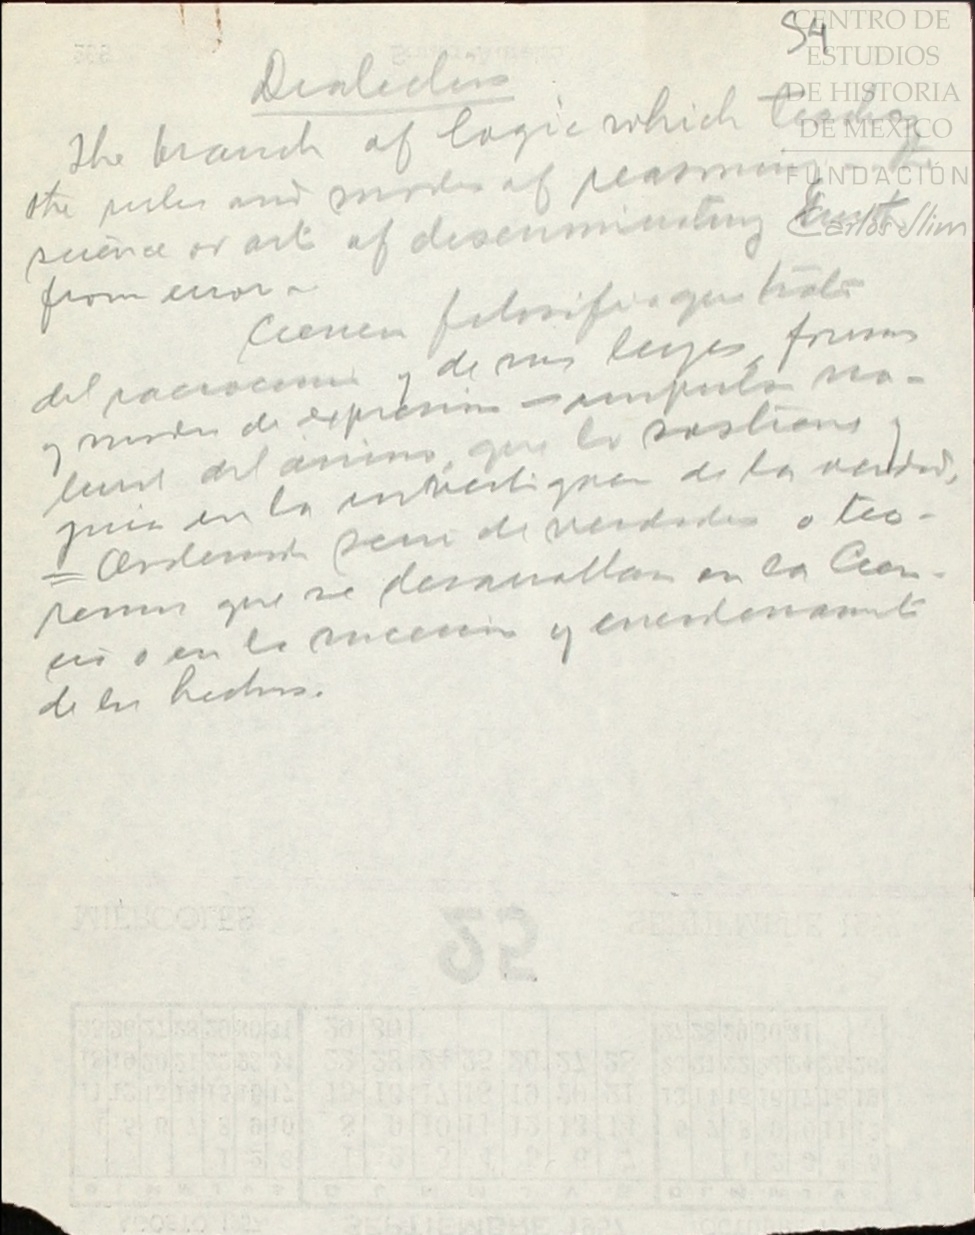 54
CENTRO DE
ESTUDIOS
DE HISTORIA
DE MÉXICO
FUNDACIÓN
Carlos Slim
Dialectics
The branch of logic which teaches
the rules and modes of reasoning – the
science or art of discriminating truth
from error –
Ciencia filosófica que trata
del raciocinio y de sus leyes, formas
y modos de expresión – impulso na-
tural del ánimo, que lo sostiene y
guía en la investigación de la verdad,
= Ordenada serie de verdades o teo-
remas que se desarrollan en la Cien-
cia o en la sucesión y encadenamiento
de los hechos.
MIÉRCOLES
25
SEPTIEMBRE
AGOSTO 1957
SEPTIEMBRE 1957